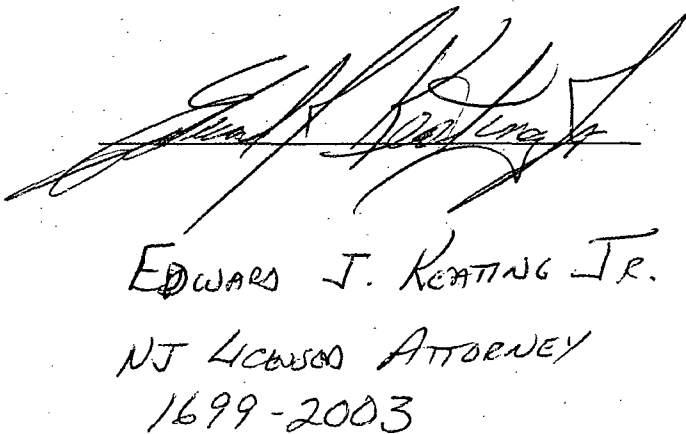 Edward J Keating Jr
EDWARD J. KEATING JR.
NJ LICENSED ATTORNEY
1699-2003